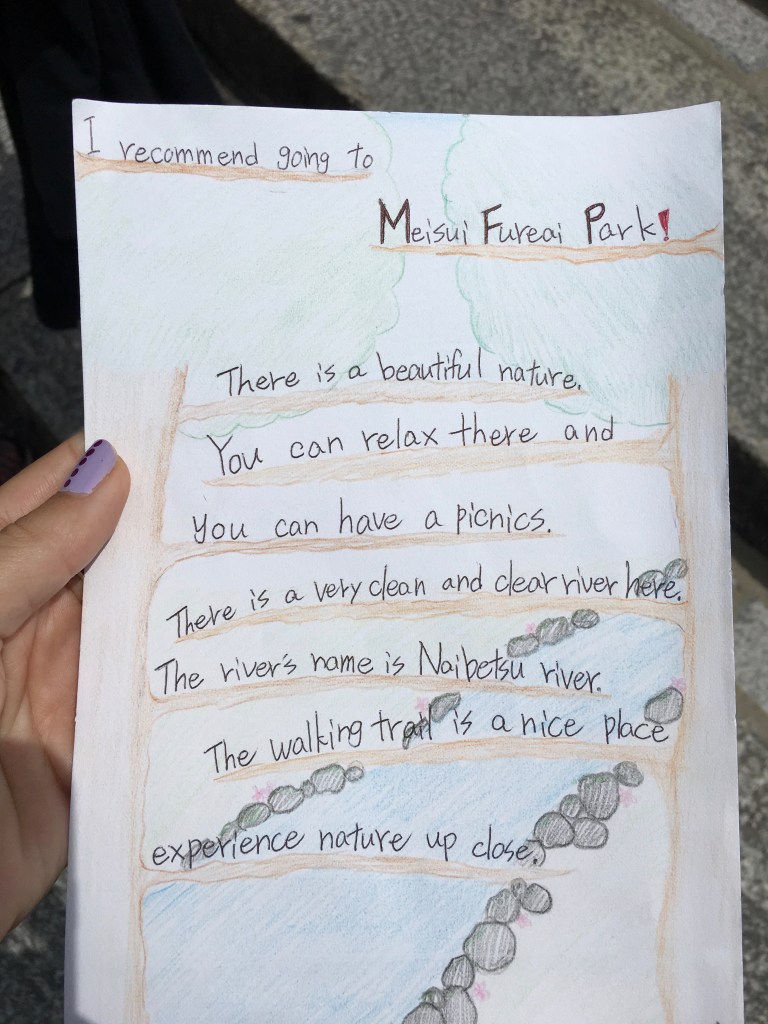 I recommend going to
Meisui Fureai Park!
There is a beautiful nature.
You can relax there and
you can have a picnics.
There is a very clean and clear river here.
The river's name is Naibetsu river.
The walking trail is a nice place
experience nature up close.